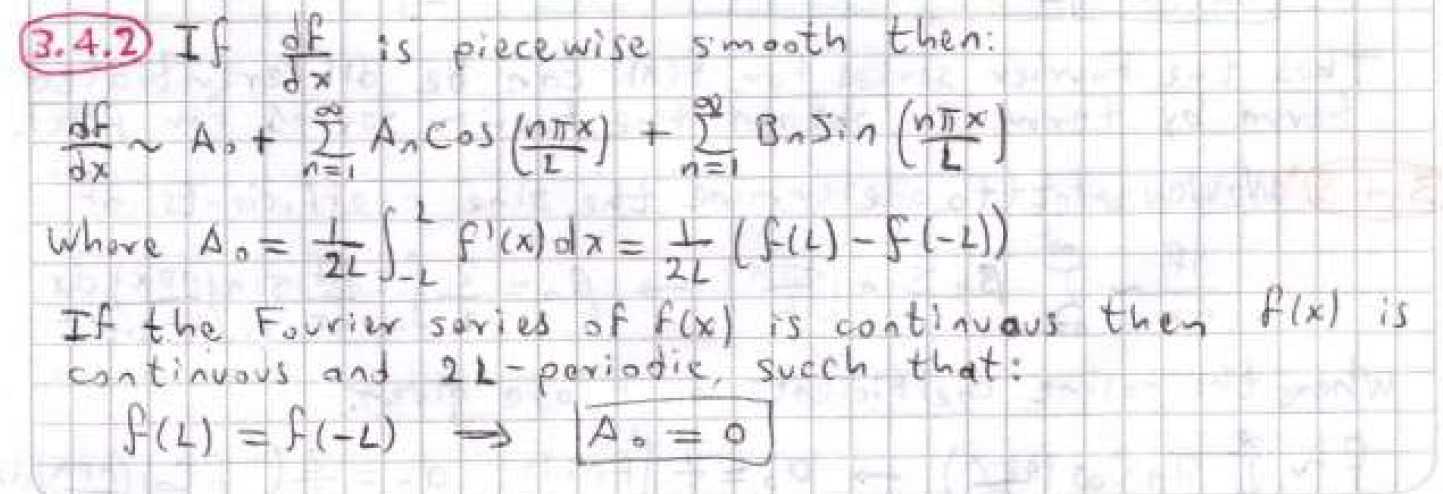 3.4.2 If df/dx is piecewise smooth then:
df/dx ~ A₀ + ∑_{n=1}^{∞} Aₙ Cos (nπx/L) + ∑_{n=1}^{∞} Bₙ Sin (nπx/L)
Where A₀ = 1/2L ∫_{-L}^{L} f'(x) dx = 1/2L (f(L) - f(-L))
If the Fourier series of f(x) is continuous then f(x) is
continuous and 2L-periodic, succh that:
f(L) = f(-L) ⇒ A₀ = 0